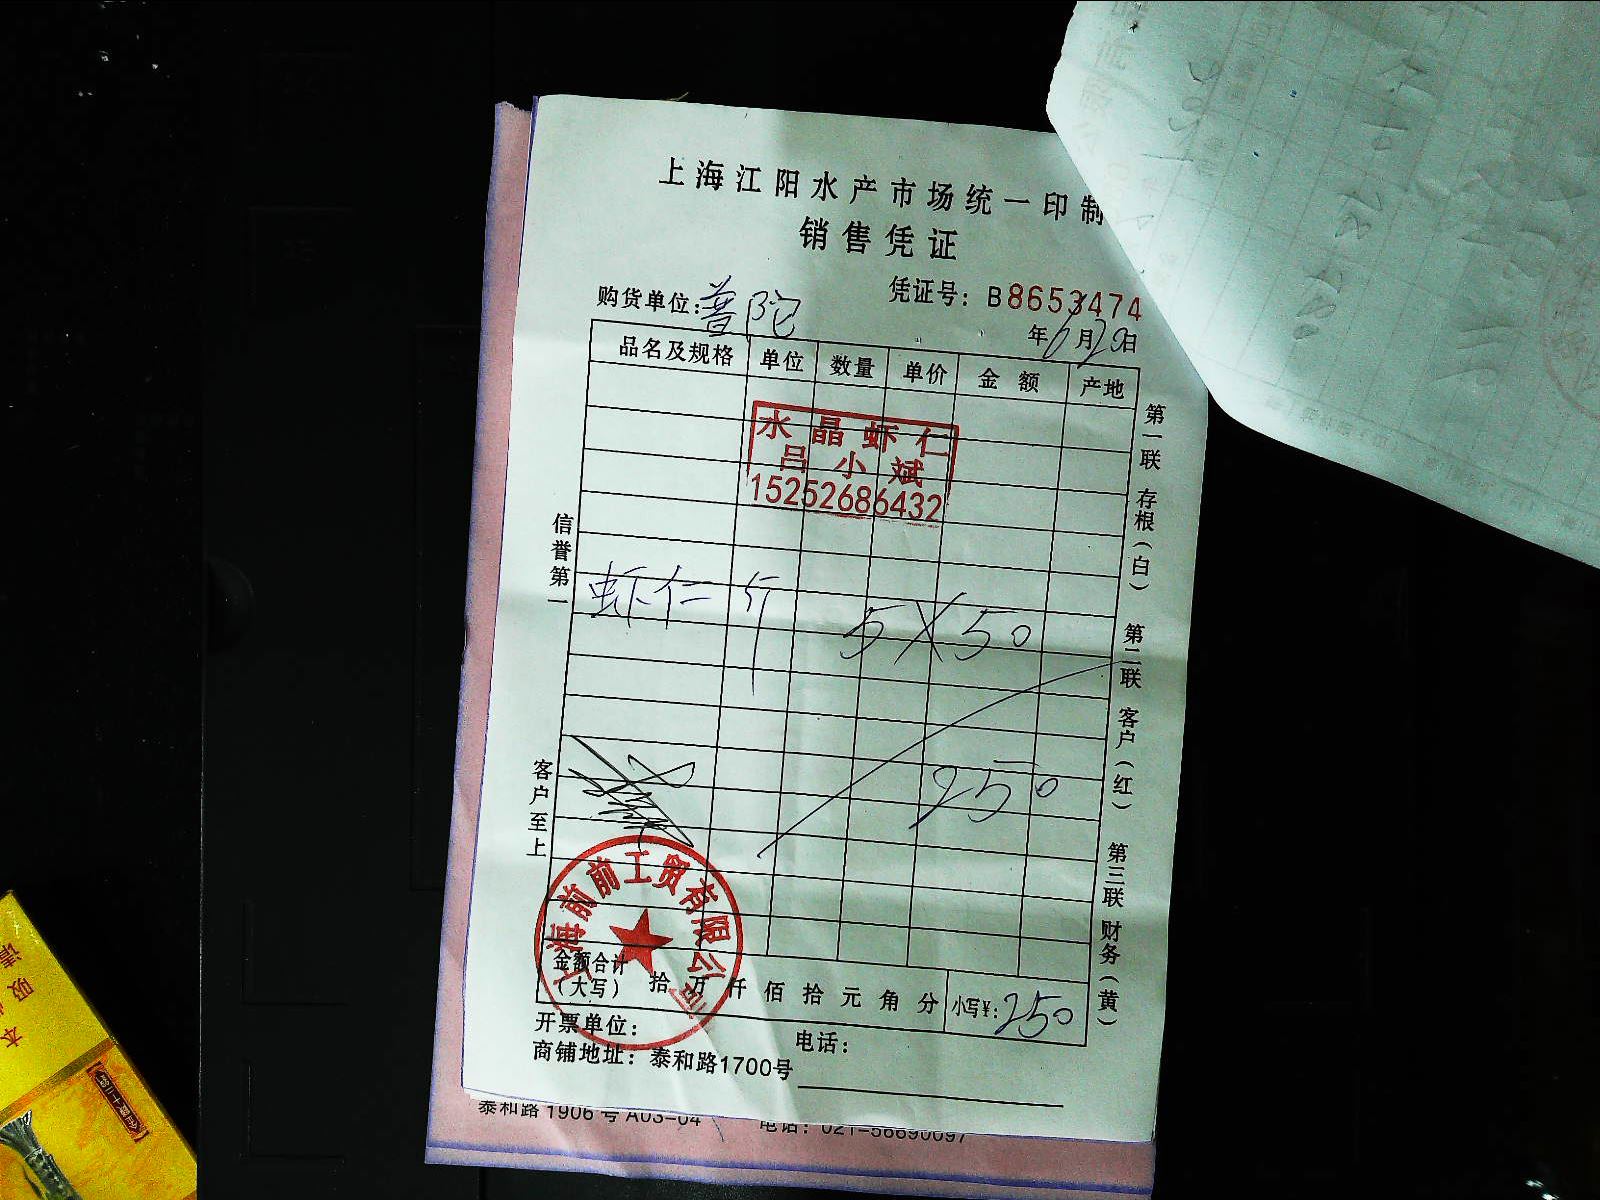 上海江阳水产市场统一印制
销售凭证
购货单位：普陀
凭证号：B8653474
年6月20日
品名及规格 单位 数量 单价 金额 产地
水晶虾仁
吕小斌
15252686432
虾仁 斤 5X50
250
信誉第一
客户至上
第一联 存根（白）
第二联 客户（红）
第三联 财务（黄）
上海前前工贸有限公司
金额合计
（大写） 拾万仟佰拾元角分 小写¥：250
开票单位： 电话：
商铺地址：泰和路1700号
泰和路1906号A03-04 电话：021-56690097